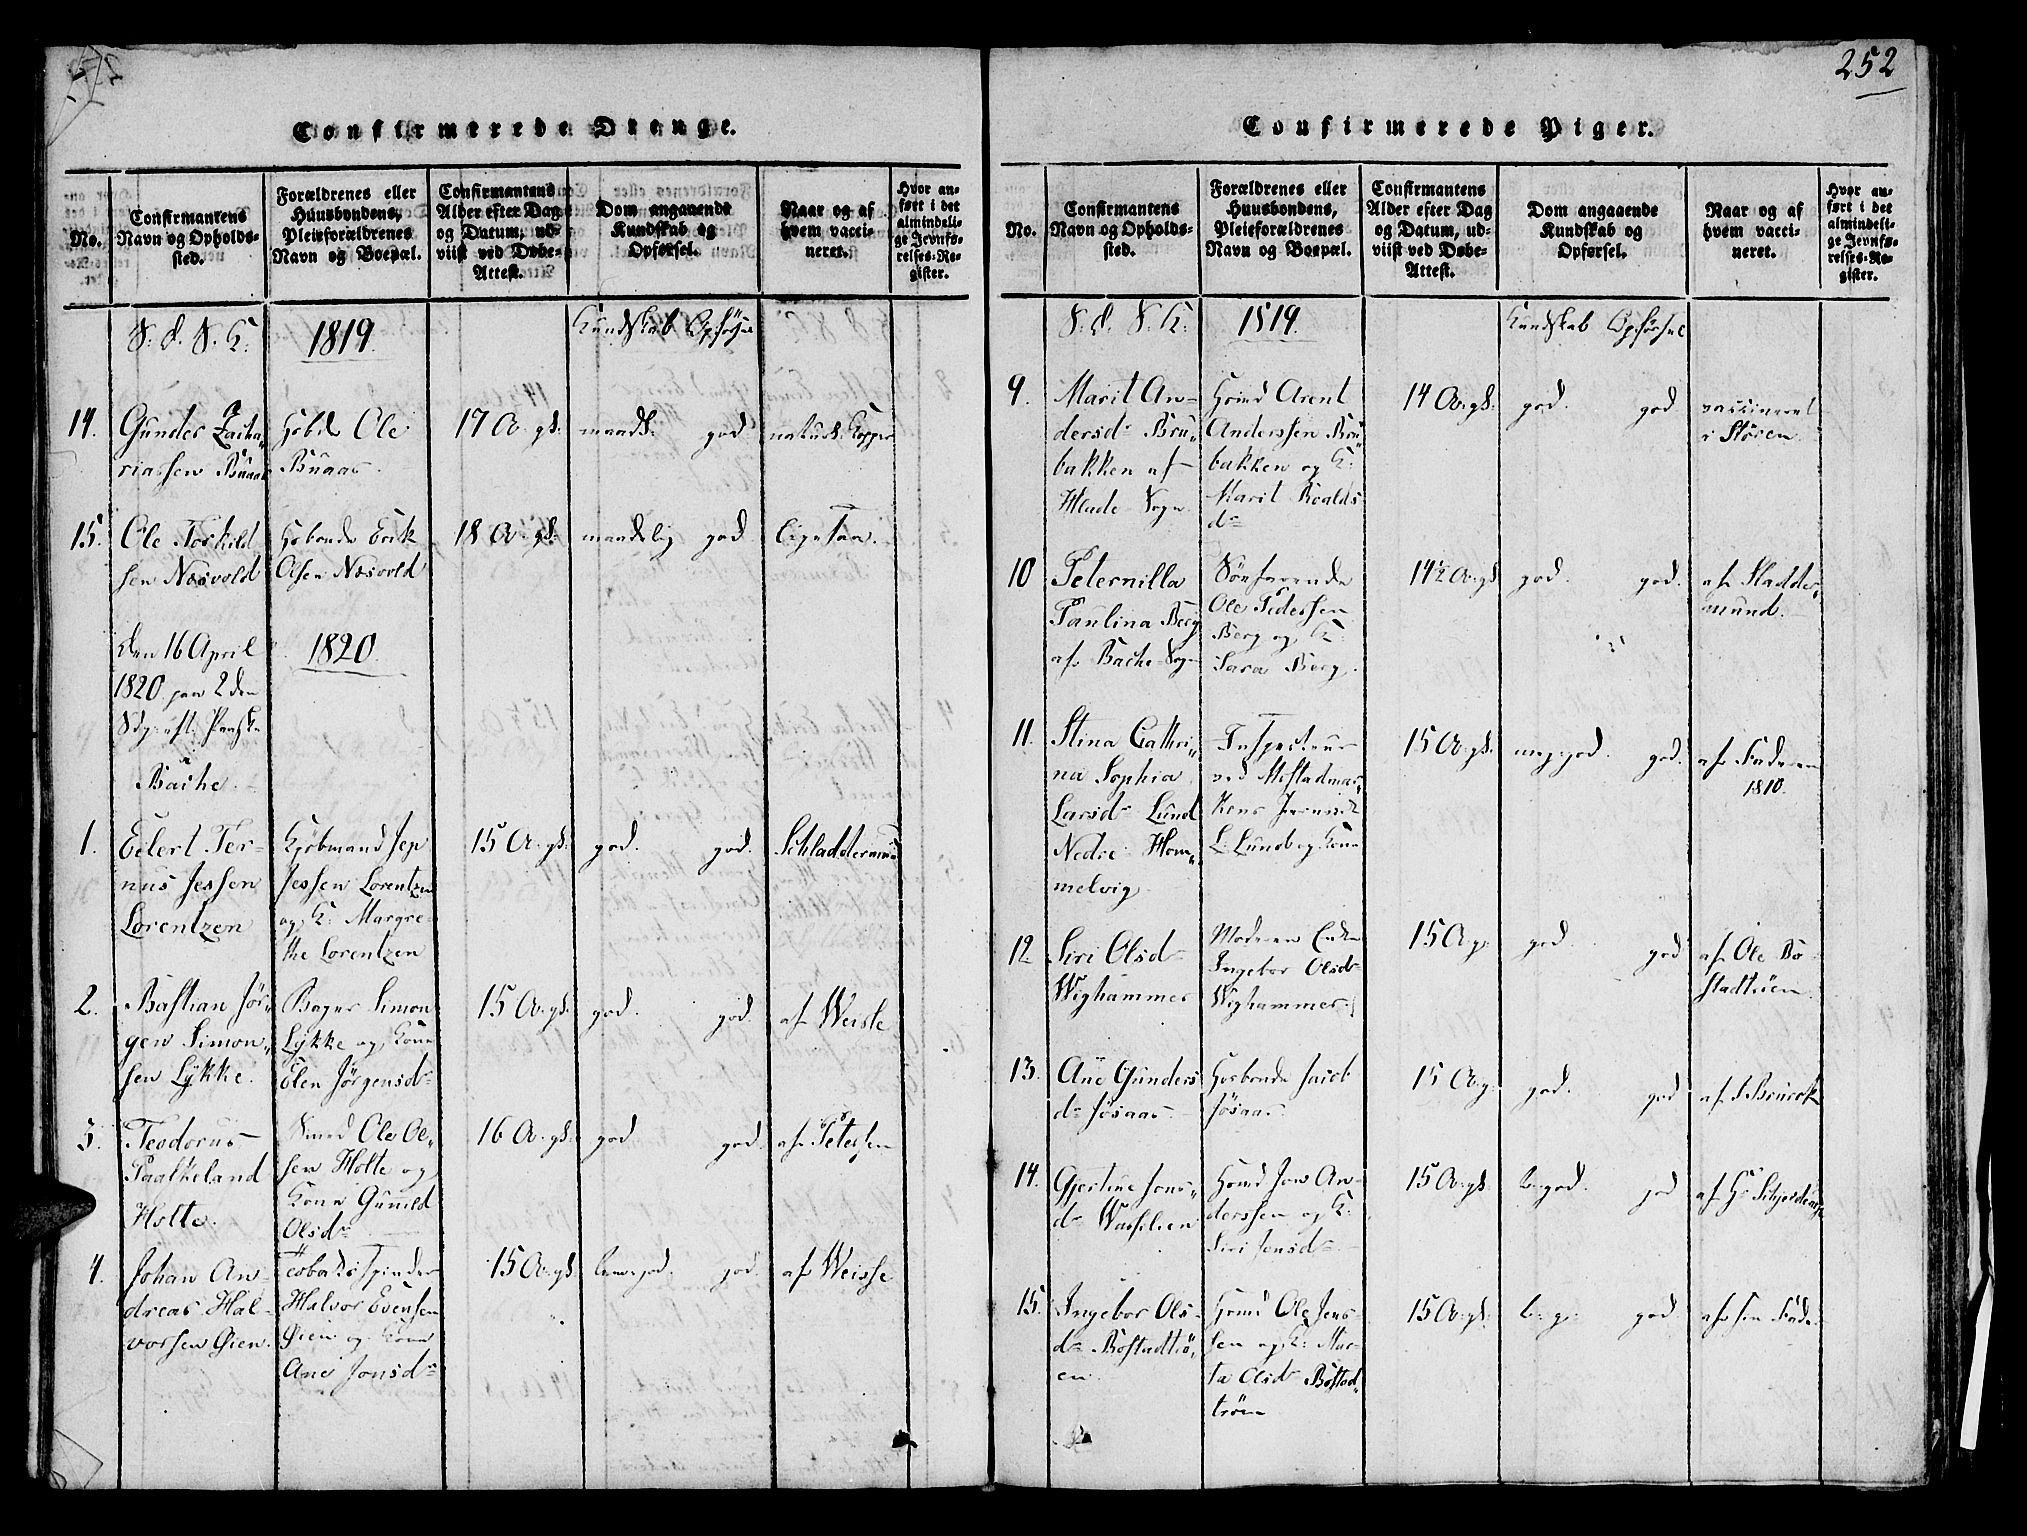 252
Confirmerede Drenge.
No.
Confirmantens
Navn og Opholds-
sted.
Forældrenes eller
Huusbondens,
Pleieforældrenes
Navn og Boepæl.
Confirmantens
Alder efter Dag
og Datum, ud-
viist ved Døbe-
Attest.
Dom angaaende
Kundskab og
Opførsel.
Naar og af
hvem vacci-
neret.
Hvor an-
ført i det
almindeli-
ge Jevnfø-
relses-Re-
gister.
S. d. S. K. 1819. Kundskab Opførsel
14. Gunder Zacha„ 17 A. gl. maadl. god naturl. Kopper
riassen Buaas
Ole
Buaas
15. Ole Torkild
sen Næsvold
Erik
Olsen Næsvold
18 A. gl. maadelig god Ligesaa.
Den 16 April 1820
1820
Bache.
1. Eilert Ter-
nus Jessen
Lorentzen
Kjøbmand Jep
Jessen Lorentzen
og K. Margre-
the Lorentzen
15 A. gl. god. god.
2. Bastian Jør-
gen Simon„
sen Lykke.
Bager Simon
Lykke og Kone
Elen Jørgensd
15 A. gl. god. god. af Weisse
3. Teodorus
Paalkeland
Holte.
Smed Ole Ol„
sen Holte og
Kone Gunild
Olsd
16 A. gl. god god. af Petersen
4. Johan An-
dreas Hal-
vorsen Øien.
Tobakspinder
Halvor Evensen
Øien og Kone
Ane Jonsd
15 A. gl. god. af Weisse
Confirmerede Piger.
No.
Confirmantens
Navn og Opholds-
sted.
Forældrenes eller
Huusbondens,
Pleieforældrenes
Navn og Boepæl.
Confirmantens
Alder efter Dag
og Datum, ud-
viist ved Døbe-
Attest.
Dom angaaende
Kundskab og
Opførsel.
Naar og af
hvem vacci-
neret.
Hvor an-
ført i det
almindeli-
ge Jevnfø-
relses-Re-
gister.
S. d. S. K: 1819. Kundskab Opførsel
9. Marit An-
dersd Bru„
bakken af
Hlade Sogn
Husmd Arent
Anderssen Bru
bakken og K:
Marit Roalds
d
14 A. gl. god. god vaccineret
i Støren
10 Peternilla
Paulina Berg
af Bache Sogn
Søefarende
Ole Pedersen
Berg og K:
Sara Berg.
14½ A. gl god. god. af Sladder„
mund.
11. Stina Cathri„
na Sophia
Larsd Lund
Nedre Hom„
melvig
Inspecteur
ved Mostadmar„
kens Jernverk
L. Lund og Kone
15 A. gl. meg. god. god. af Faderen
1810.
12 Siri Olsd
Wighammer
Moderen Enke
Ingebor Olsd
Wighammer
15 A. g. god god af Ole Bo-
stadtrøen.
13. Ane Gunders
d Jøsaas
Husbonde Jacob
Jøsaas.
15 A. g. god. god
14. Gjertine Jons„
d Wasslien
Husmd Jon An-
derssen og K:
Siri Jensd
15 A. gl. god. god
15. Ingebor Ols-
d Bostadtrø„
en.
Husmd Ole Jens-
sen og K: Mar-
ta Olsd Bostad„
trøen
15 A. gl. god. af sin Fader